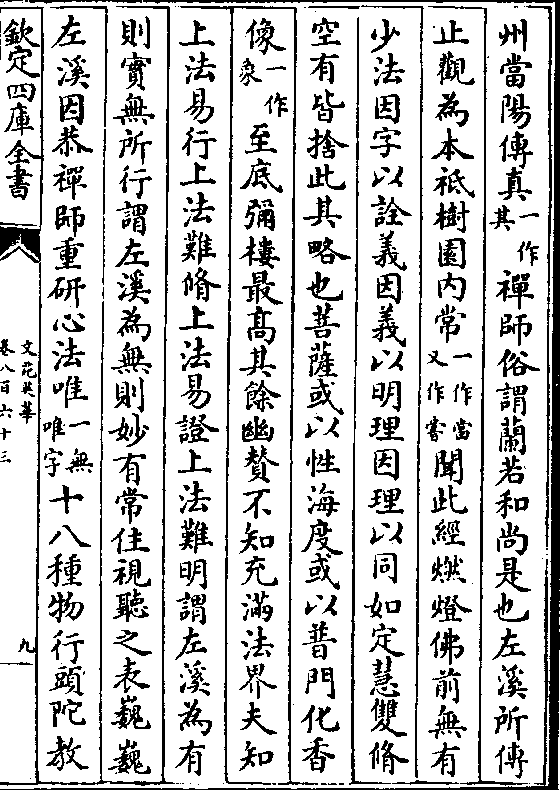 州當陽傳真一作其禪師俗謂蘭若和尚是也左溪所傳
止觀為本祗樹園內常一作當又作嘗聞此經燃燈佛前無有
少法因字以詮義因義以明理因理以同如定慧雙脩
空有皆捨此其略也菩薩或以性海度或以普門化香
像一作象至底彌樓最髙其餘幽贊不知充滿法界夫知
上法易行上法難脩上法易證上法難明謂左溪為有
則實無所行謂左溪為無則妙有常住視聽之表巍巍
左溪因恭禪師重研心法唯一無唯字十八種物行頭陀教
欽定四庫全書
文苑英華
卷八百六十三
九